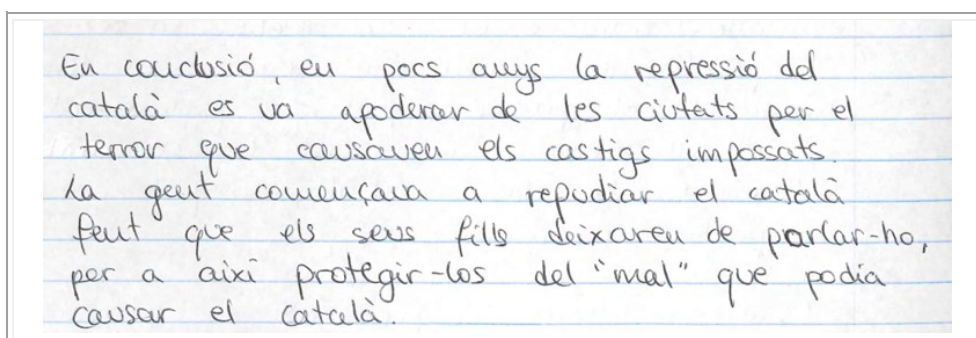 En conclusió, en pocs anys la repressió del
català es va apoderar de les ciutats per el
terror que causaven els castigs impossats.
La gent començava a repudiar el català
fent que els seus fills deixaren de parlar-ho,
per a així protegir-los del "mal" que podia
causar el català.